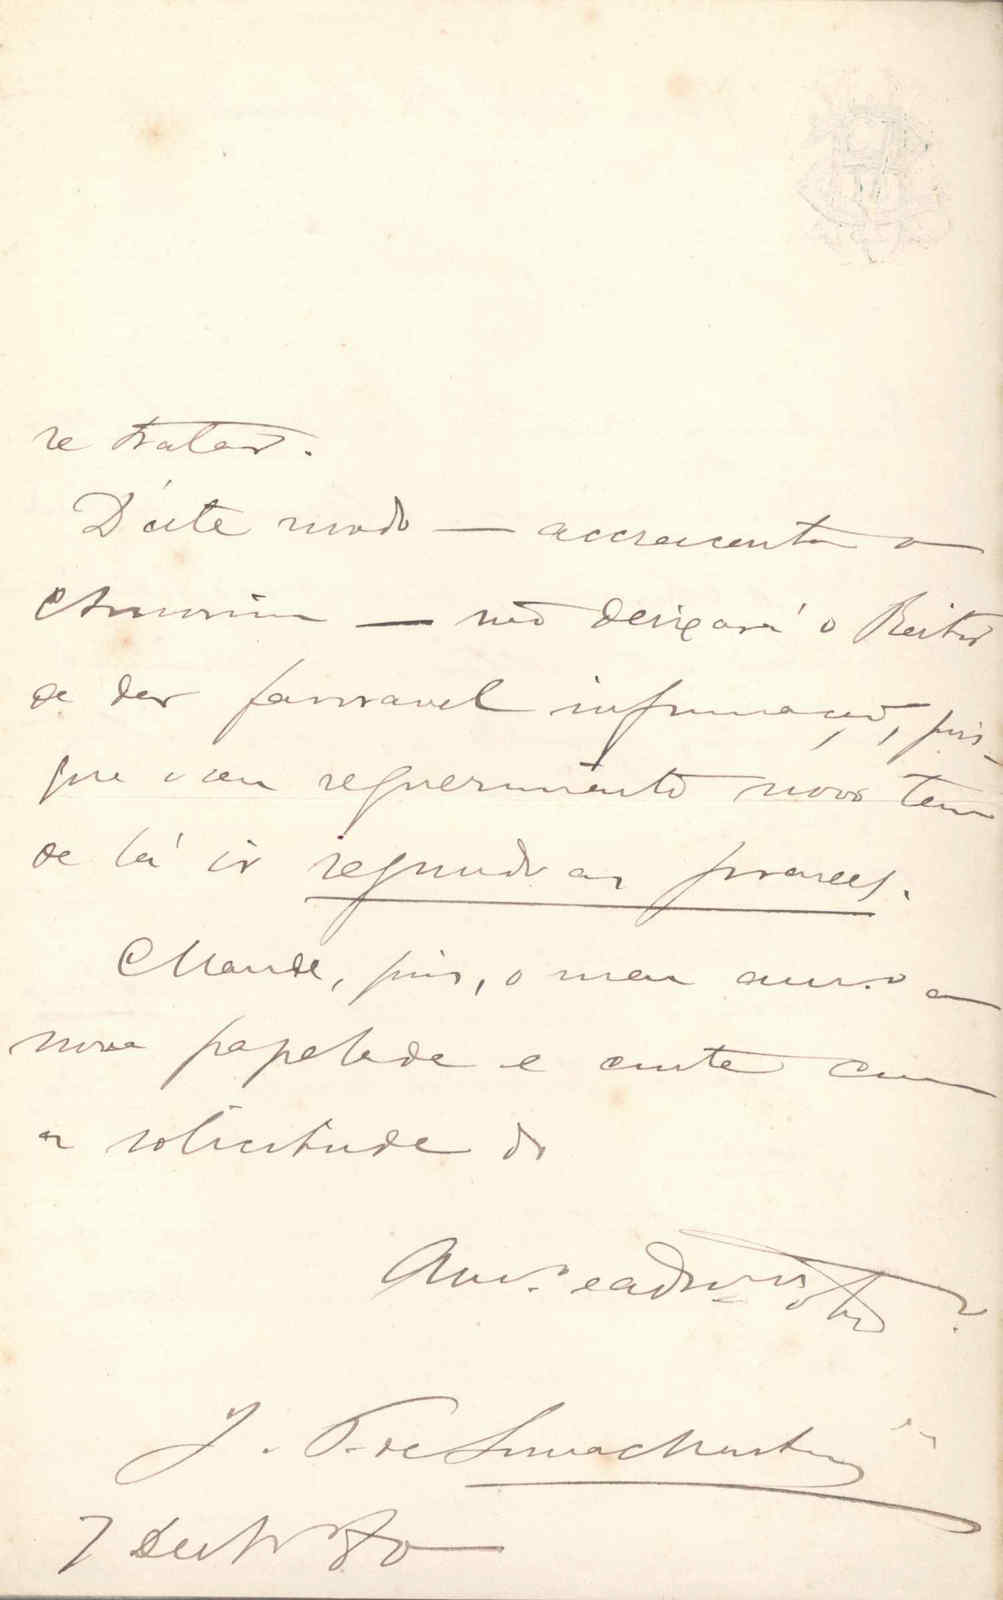 se tratar.
D'este modo — accrescenta o
Amorim — não deixará o Reitor
de dar favoravel informação, pois
que o seu requerimento novo tem
de lá ir segundo as praxes.
Mande, pois, o meu am.o a
nova papelada e conte com
a solicitude do
Am.o e admirador
J. P. de Oliveira Martins
7 Dezbro 80